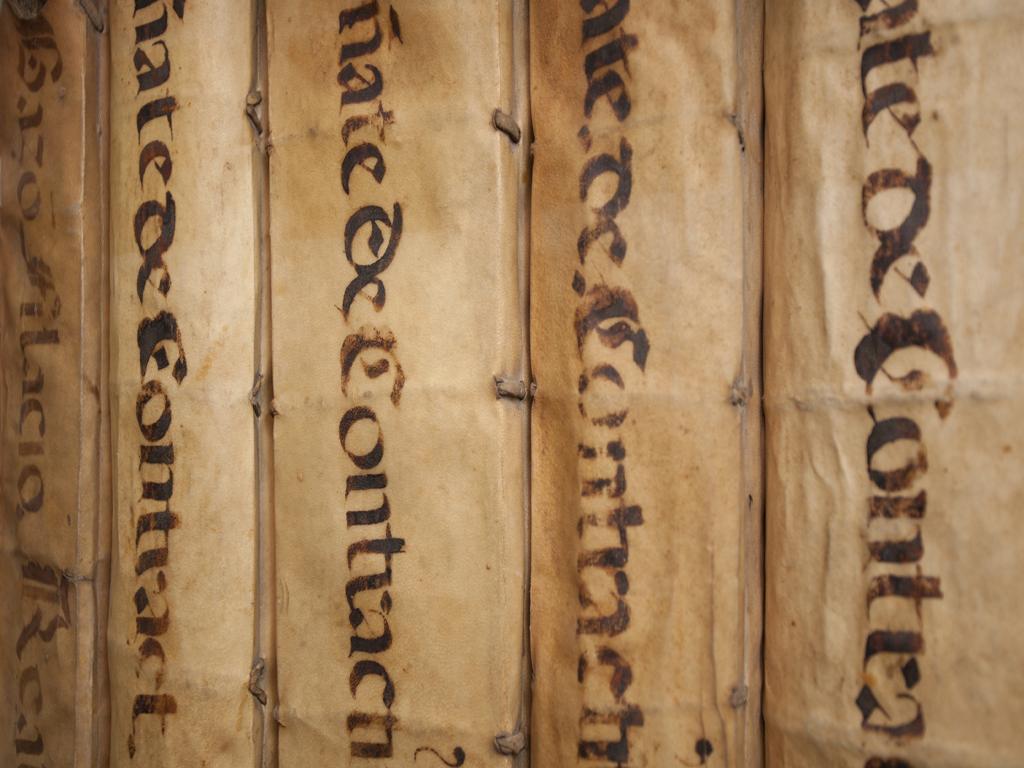 Filacio. R
ñate De Contract
ñate De Contrach
ate. De. Contrach
te De Contra